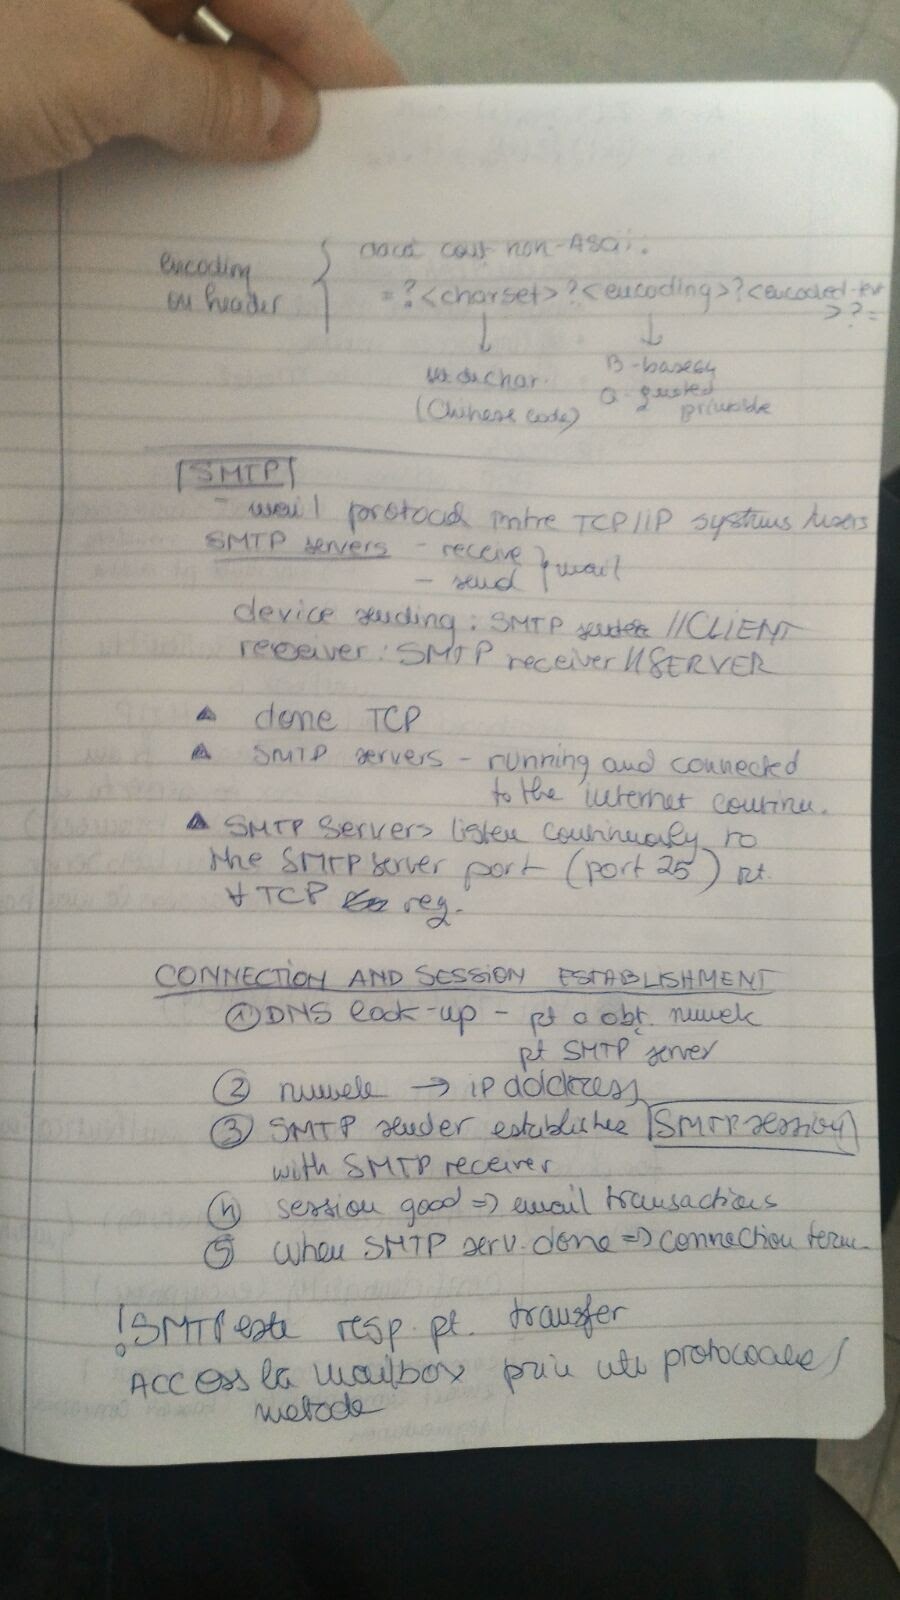 encoding on header { dacă conț non-ASCii:
=?<charset>?<encoding>?<encoded-text>?=
set de char. B - base64
(Chinese code) Q - quoted printable
SMTP
- mail protocol între TCP/IP systems/users
SMTP servers - receive } mail
- send
device sending: SMTP sender //CLIENT
receiver: SMTP receiver //SERVER
▲ done TCP
▲ SMTP servers - running and connected
to the internet continu.
▲ SMTP Servers listen continuously to
the SMTP server port (port 25) pt.
∀ TCP req.
CONNECTION AND SESSION ESTABLISHMENT
① DNS look-up - pt a obț. numele
pt SMTP server
② numele → IP address
③ SMTP sender establishes SMTP session
with SMTP receiver
④ session good => email transactions
⑤ when SMTP serv. done => connection term.
! SMTP este resp. pt. transfer
Access la mailbox prin alte protocoale/
metode